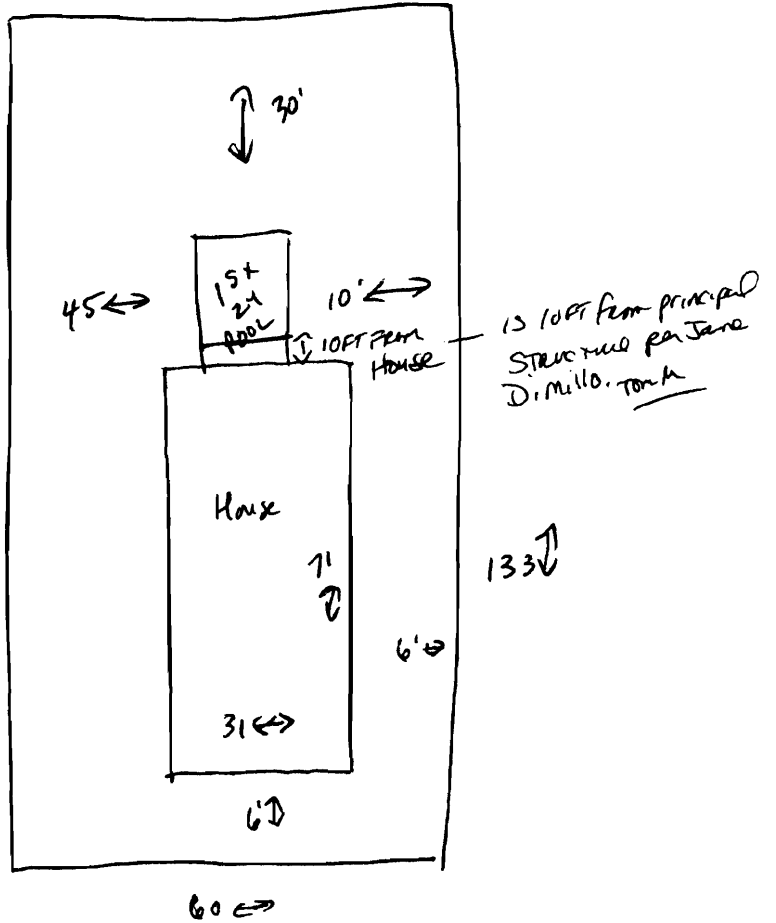 30'
15x
24
POOL
45
10'
10FT FROM
House
IS 10FT from principal
Structure per Jane
D. Millo. Tom M
House
71
133
6'
31
6'
60